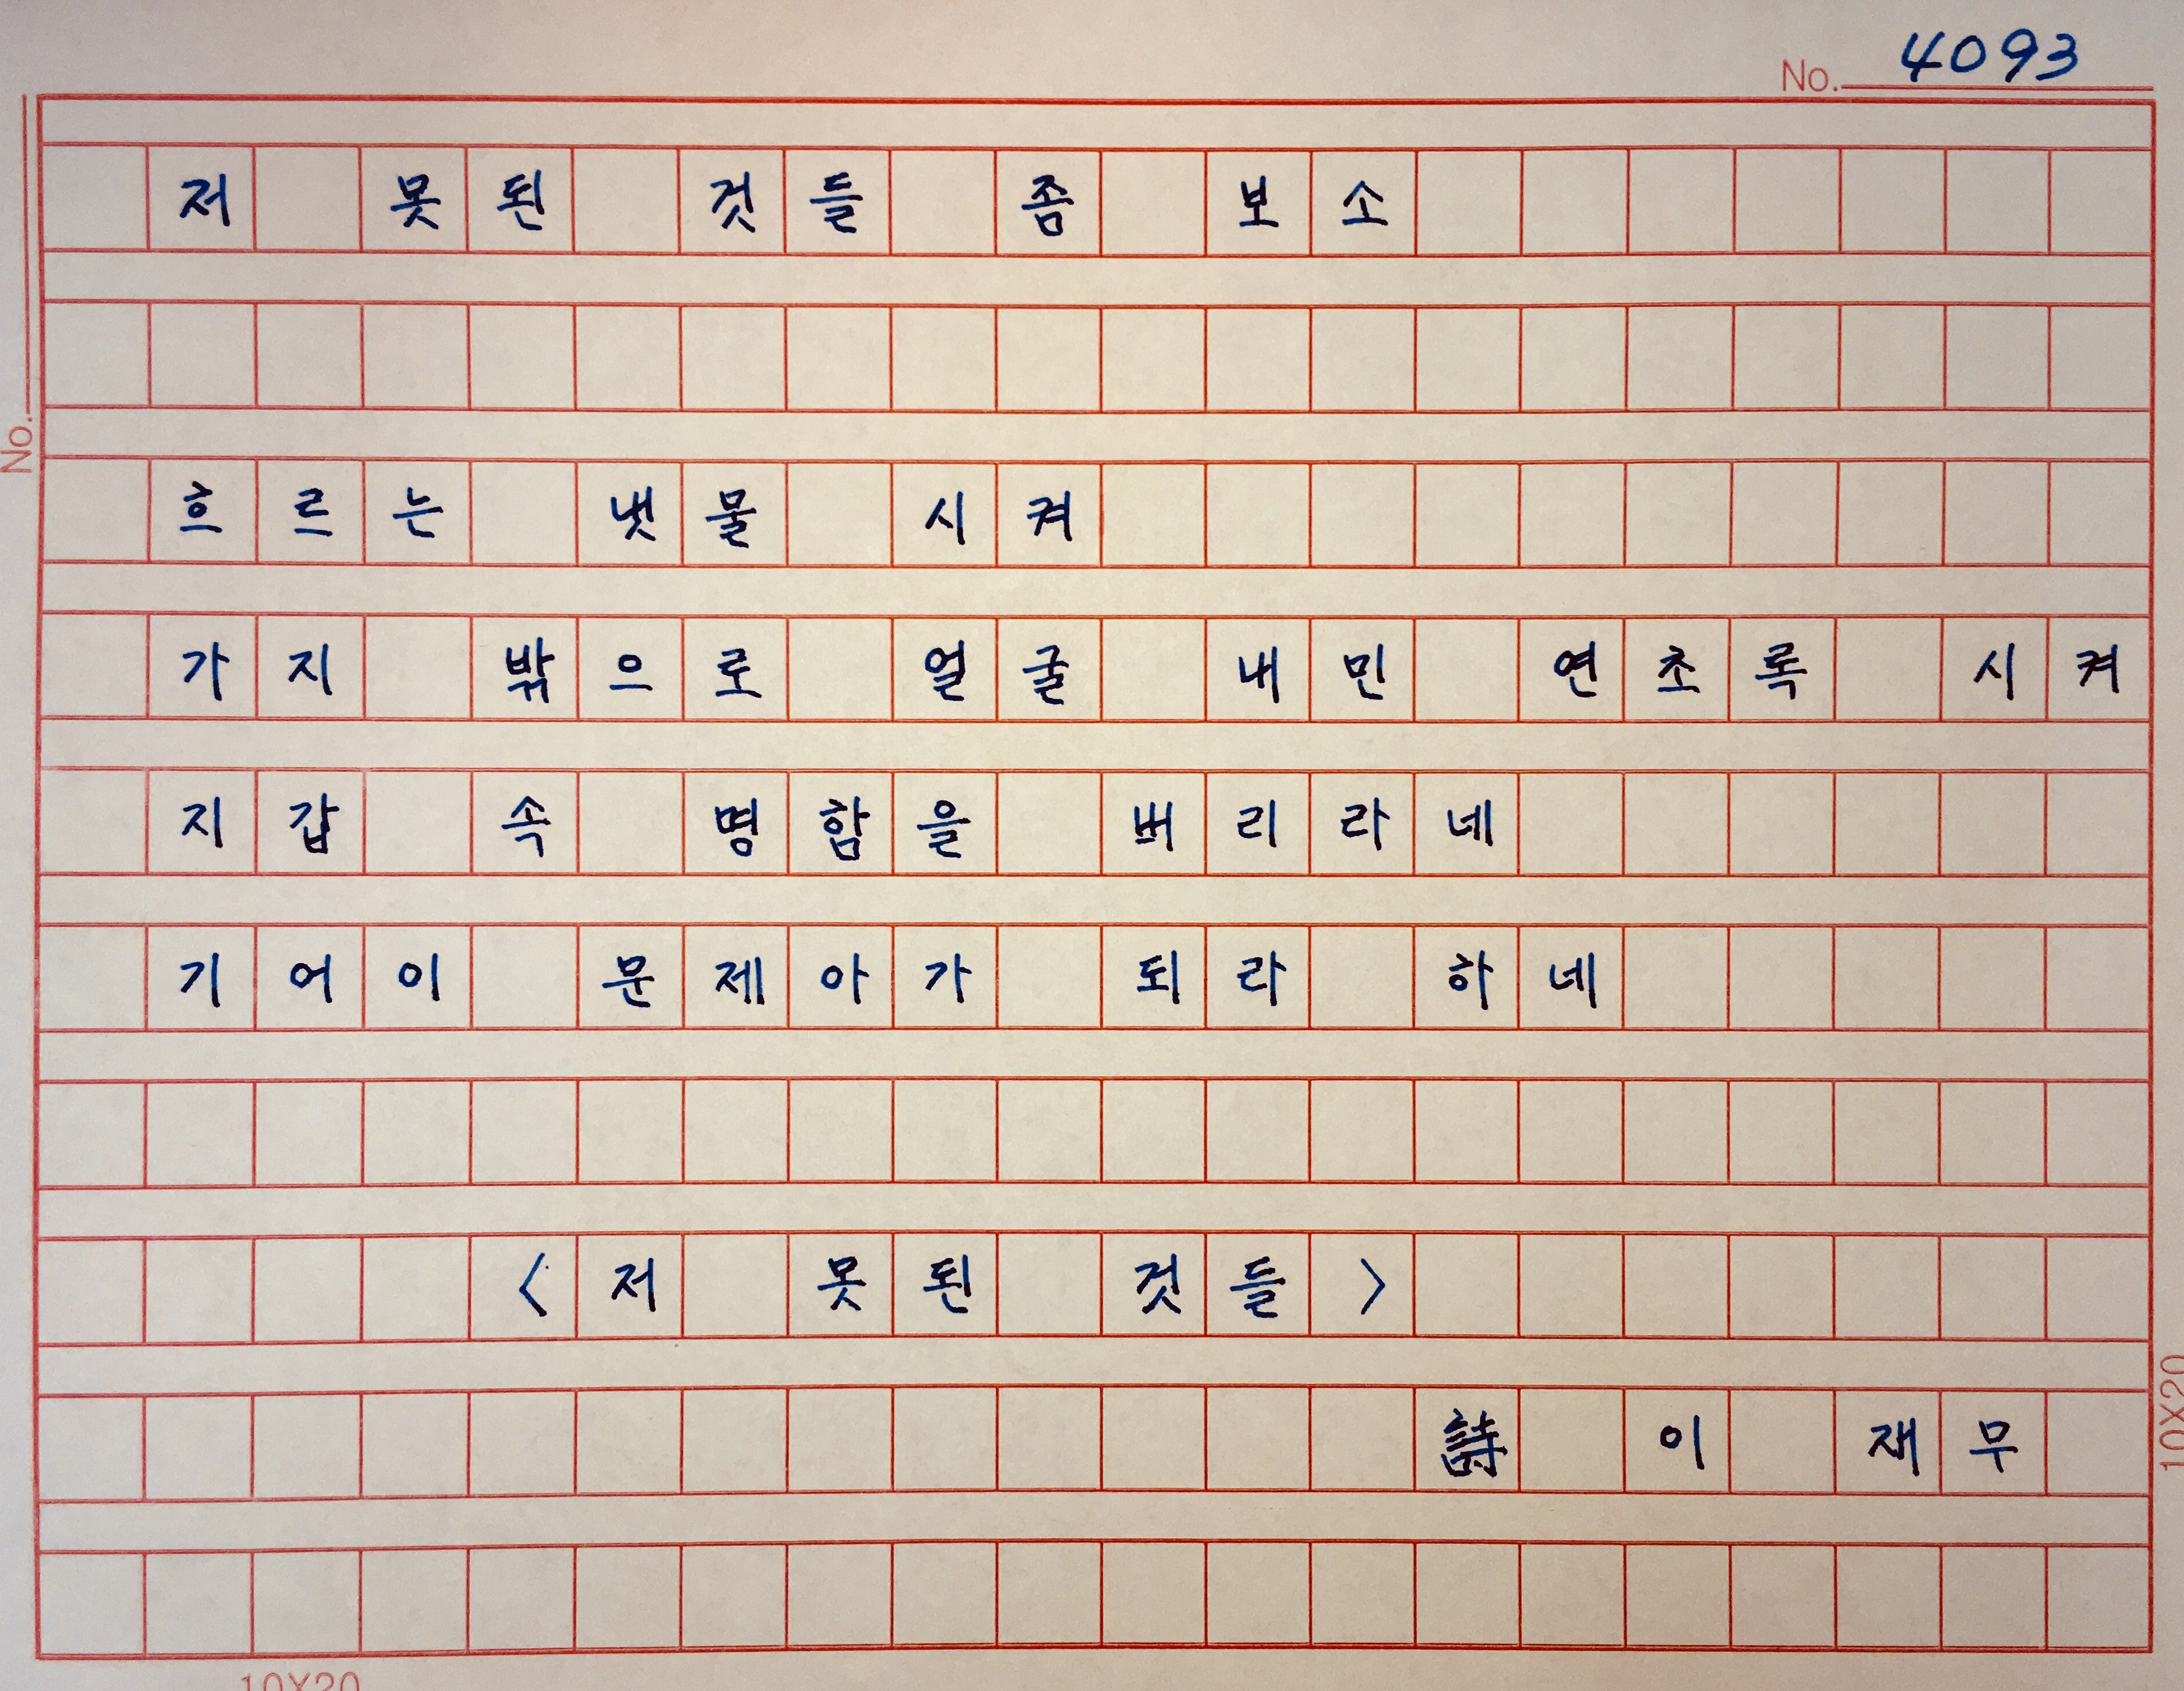 No. 4093
저 못된 것들 좀 보소
흐르는 냇물 시켜
가지 밖으로 얼굴 내민 연초록 시켜
지갑 속 명함을 버리라네
기어이 문제아가 되라 하네
<저 못된 것들>
詩 이 재무
No.
10X20
10X20